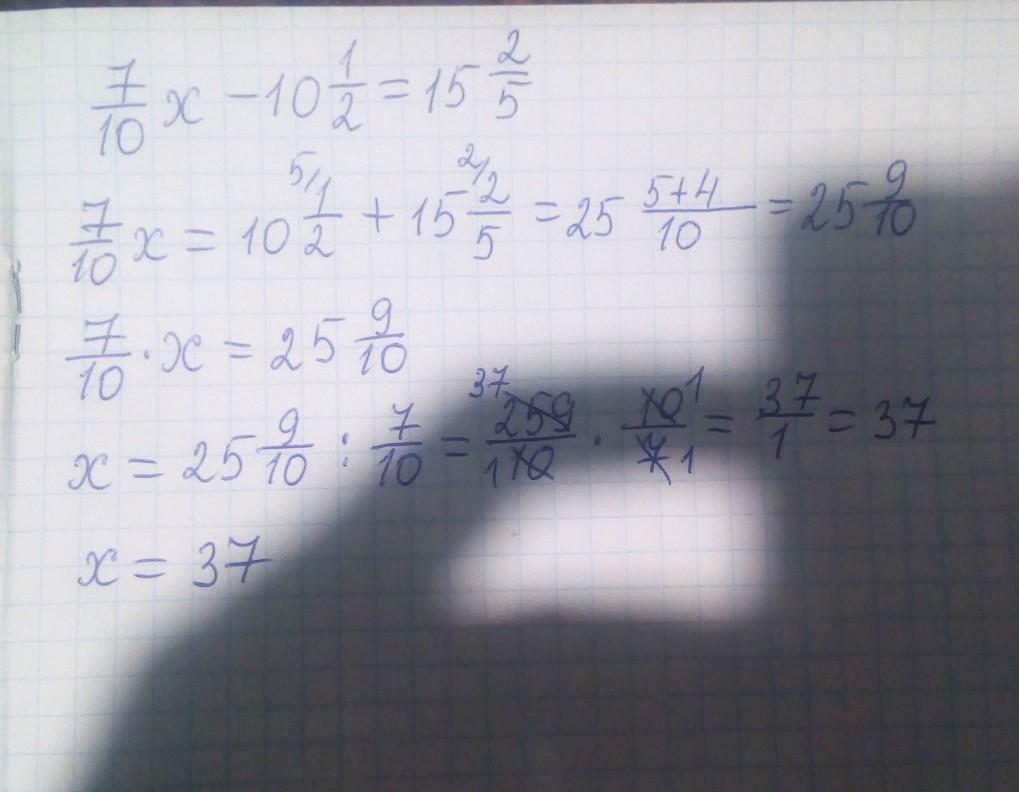 7/10 x - 10 1/2 = 15 2/5
7/10 x = 10 5/ 1/2 + 15 2/ 2/5 = 25 5+4/10 = 25 9/10
7/10 · x = 25 9/10
x = 25 9/10 : 7/10 = 37 259/1 10 · 10 1/7 1 = 37/1 = 37
x = 37